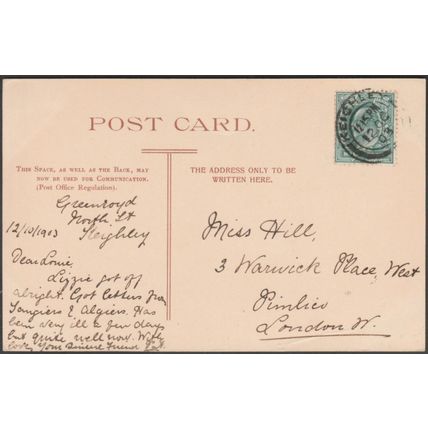 POST CARD.
THIS SPACE, AS WELL AS THE BACK, MAY
NOW BE USED FOR COMMUNICATION.
(Post Office Regulation).
THE ADDRESS ONLY TO BE
WRITTEN HERE.
KEIGHLEY
12 OC
03
Greenroyd
North St
Keighley
12/10/1903
Dear Louie.
Lizzie got off
alright. Got letters from
Tangiers & Algiers. Has
been very ill a few days
but quite well now. With
love, Your sincere Friend
Miss Hill,
3 Warwick Place, West
Pimlico
London W.